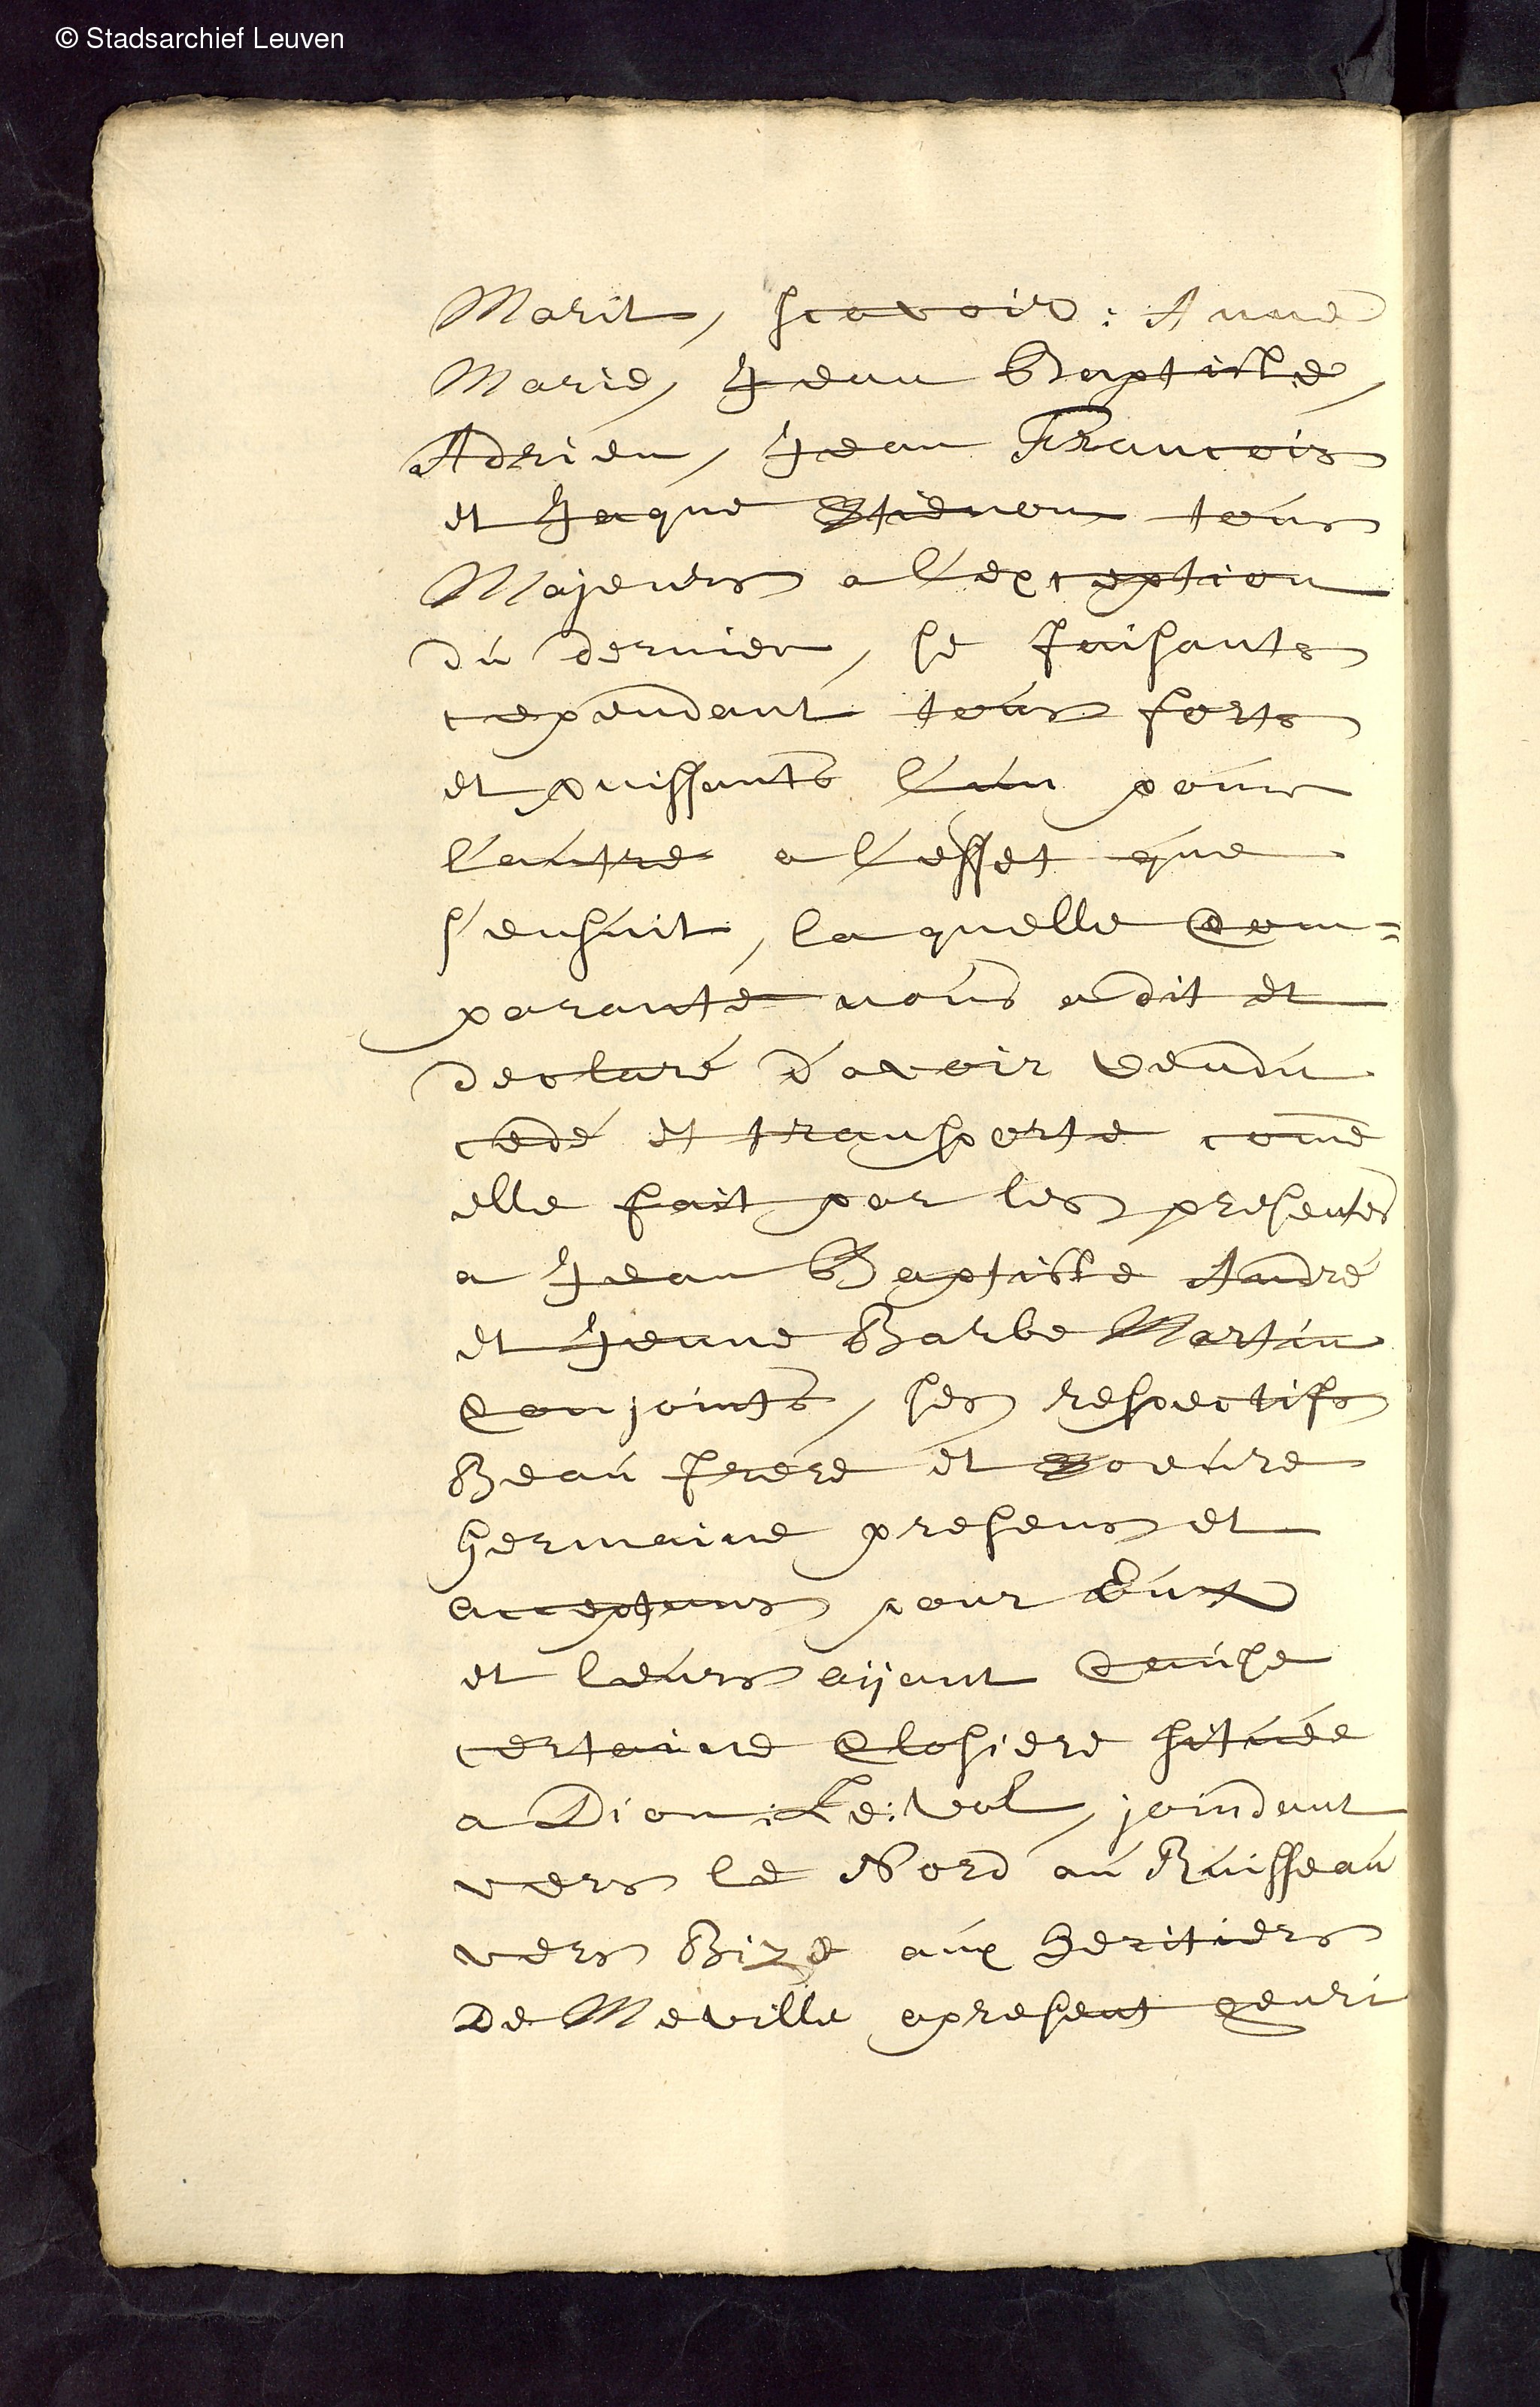 © Stadsarchief Leuven
Marit, scavoir : Anne
Marie, Jean Baptiste,
Adrien, Jean Francois
et Jaque Stiénon tous
Majeurs a l'exception
du dernier, se faisants
cependant tous forts
et puissants l'un pour
l'autre a l'effet que
s'ensuit, la quelle Com=
parante nous a dit et
declaré d'avoir vendu
cedé et transporte come
elle fait par les presentes
a Jean Baptiste André
et Jenne Barbe Martin
Conjoints, ses respectifs
Beau frere et Soeure
germaine presens et
acceptans pour Eux
et leurs aijant Cause
certaine Closiere située
a Dion :Le: Val, joindant
vers le Nord au Ruisseau
vers Bize aux heritiers
De Meville apresent henri